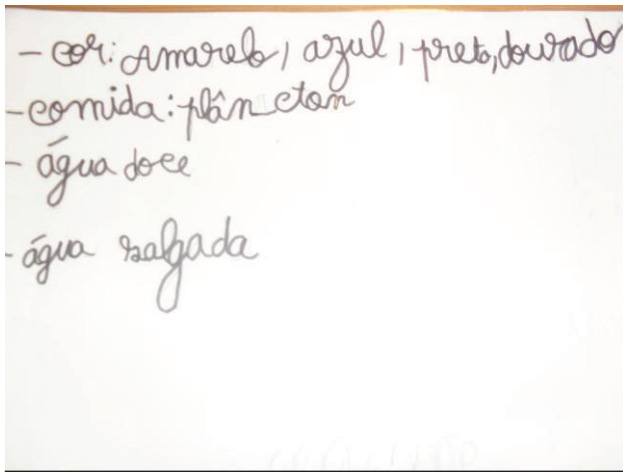 - cor: Amarelo, azul, preto, dourado
- comida: plâncton
- água doce
- água salgada